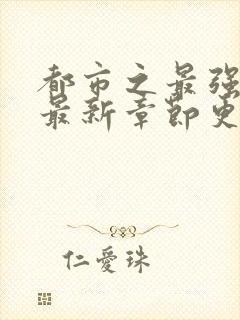 都市之最强
最新章节更
仁愛珠